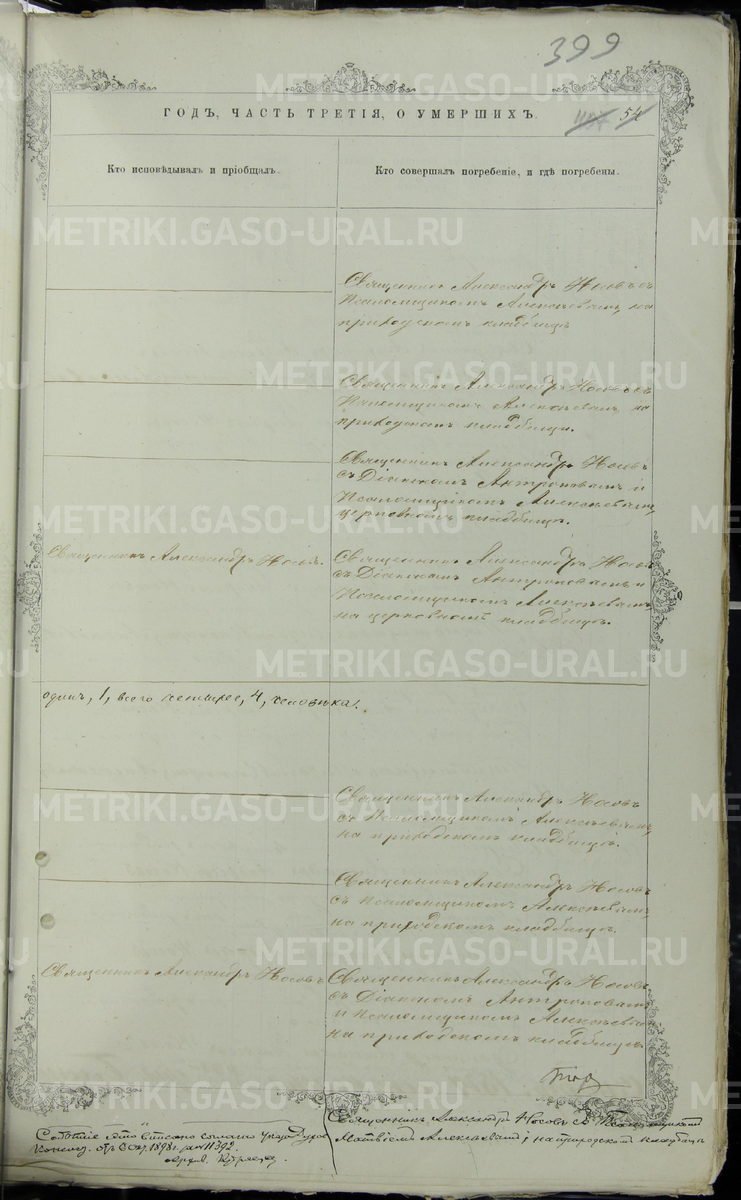 399
ГОДЪ, ЧАСТЬ ТРЕТІЯ, О УМЕРШИХЪ.
54
Кто исповѣдывалъ и пріобщалъ.
Кто совершалъ погребеніе, и гдѣ погребены.
Священникъ Александръ Носовъ съ
Псаломщикомъ Алексѣевымъ, на
приходскомъ кладбищѣ
Священникъ Александръ Носовъ съ
Псаломщикомъ Алексѣевымъ на
приходскомъ кладбищѣ.
Священникъ Александръ Носовъ
съ Діакономъ Антроповымъ и
Псаломщикомъ Алексѣевымъ,
церковномъ кладбищѣ.
Священникъ Александръ Носовъ.
Священникъ Александръ Носовъ
съ Діакономъ Антроповымъ и
Псаломщикомъ Алексѣевымъ
на церковномъ кладбищѣ.
одинъ, 1, всего четыре, 4, человѣка.
Священникъ Александръ Носовъ
съ Псаломщикомъ Алексѣевымъ,
на приходскомъ кладбищѣ.
Священникъ Александръ Носовъ
съ Псаломщикомъ Алексѣевымъ
на приходскомъ кладбищѣ.
Священникъ Александръ Носовъ
Священникъ Александръ Носовъ
съ Діакономъ Антроповымъ
и Псаломщикомъ Алексѣевымъ
на приходскомъ кладбищѣ.
Священникъ Александръ Носовъ съ Псаломщикомъ
Матвѣемъ Алексѣевымъ, на приходскомъ кладбищѣ
Событіе это вписано согласно Указу Духов
Консист. отъ 1898 г. за № 11392.
METRIKI.GASO-URAL.RU